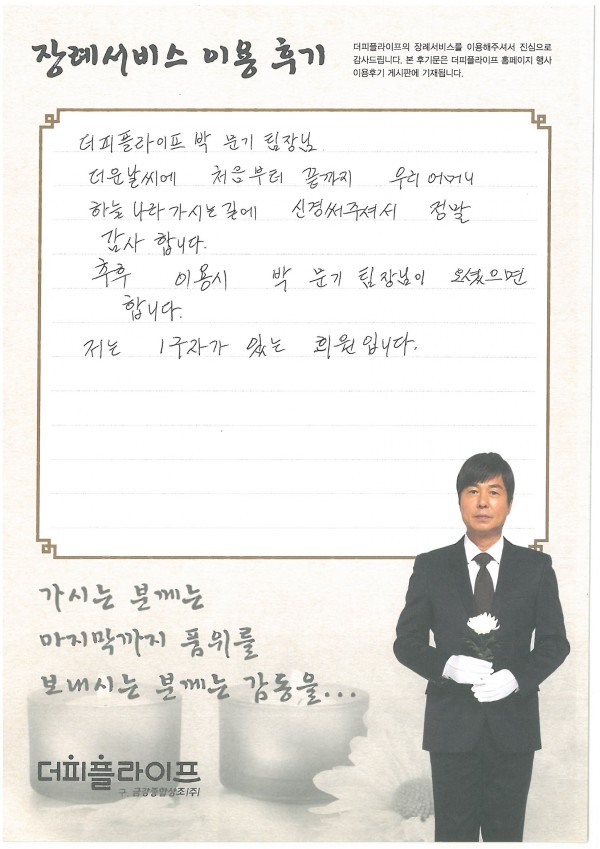 장례서비스 이용 후기
더피플라이프의 장례서비스를 이용해주셔서 진심으로
감사드립니다. 본 후기문은 더피플라이프 홈페이지 행사
이용후기 게시판에 기재됩니다.
더피플라이프 박 문기 팀장님.
더운날씨에 처음부터 끝까지 우리 어머니
하늘나라 가시는길에 신경써주셔서 정말
감사 합니다.
추후 이용시 박 문기 팀장님이 오셨으면
합니다.
저는 1구좌가 있는 회원입니다.
가시는 분께는
마지막까지 품위를
보내시는 분께는 감동을...
더피플라이프
구. 금강종합상조(주)